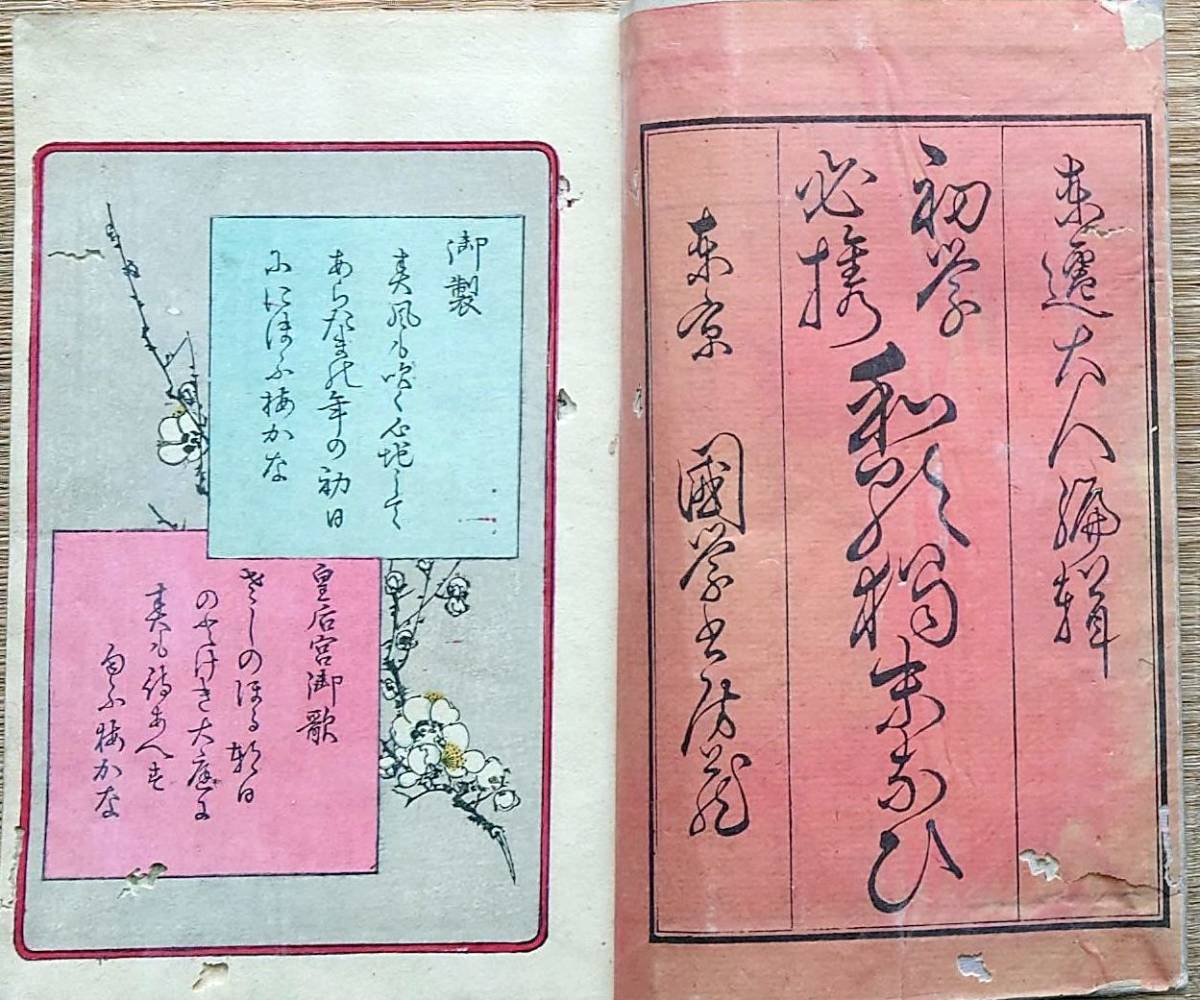 東遷大人編輯
初学
必携
和歌獨末奈ひ
東京 國学書房蔵
御製
春風も吹く心地して
あらたまの年の初日
ににほふ梅かな
皇后宮御歌
さしのほる朝日
のとけき大庭に
春も待あへす
匂ふ梅かな